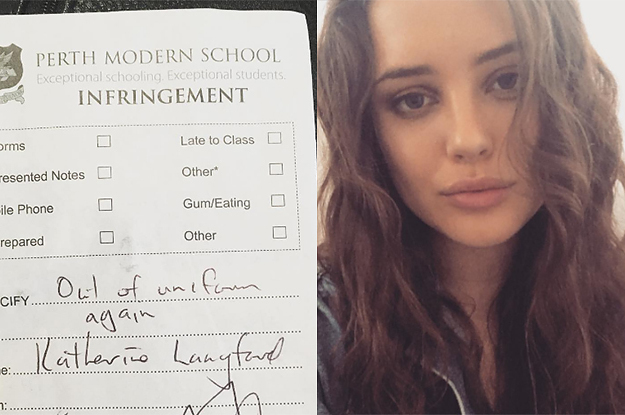 PERTH MODERN SCHOOL
Exceptional schooling. Exceptional students.
INFRINGEMENT
orms Late to Class
resented Notes Other*
ile Phone Gum/Eating
repared Other
CIFY Out of uniform
again
e: Katherine Langford